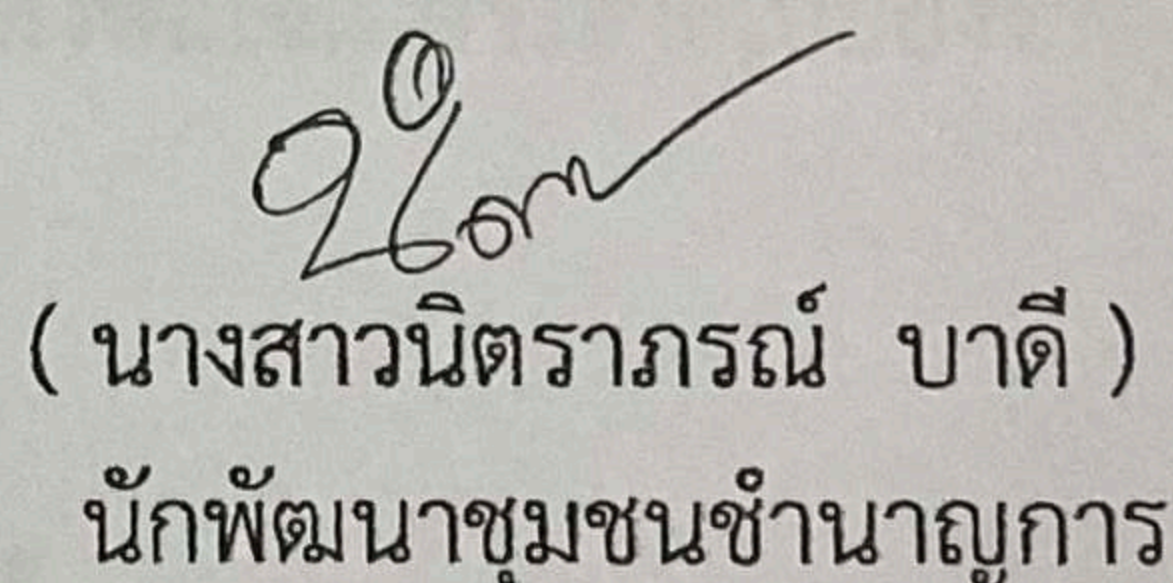 ( นางสาวนิตราภรณ์ บาดี )
นักพัฒนาชุมชนชำนาญการ